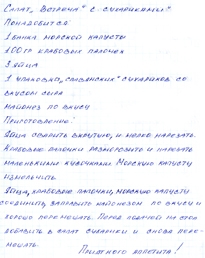 Салат „Встреча" с сухариками!
Понадобится:
1 банка морской капусты
100 гр крабовых палочек
3 яйца
1 упаковка „славянских" сухариков со
вкусом сыра
майонез по вкусу
Приготовление:
Яйца сварить вкрутую, и мелко нарезать.
Крабовые палочки разморозить и нарезать
маленькими кубочками. Морскую капусту
измельчить.
Яйца, крабовые палочки, морскую капусту
соединить, заправить майонезом по вкусу и
хорошо перемешать. Перед подачей на стол
добавить в салат сухарики и снова пере-
мешать.
Приятного аппетита!